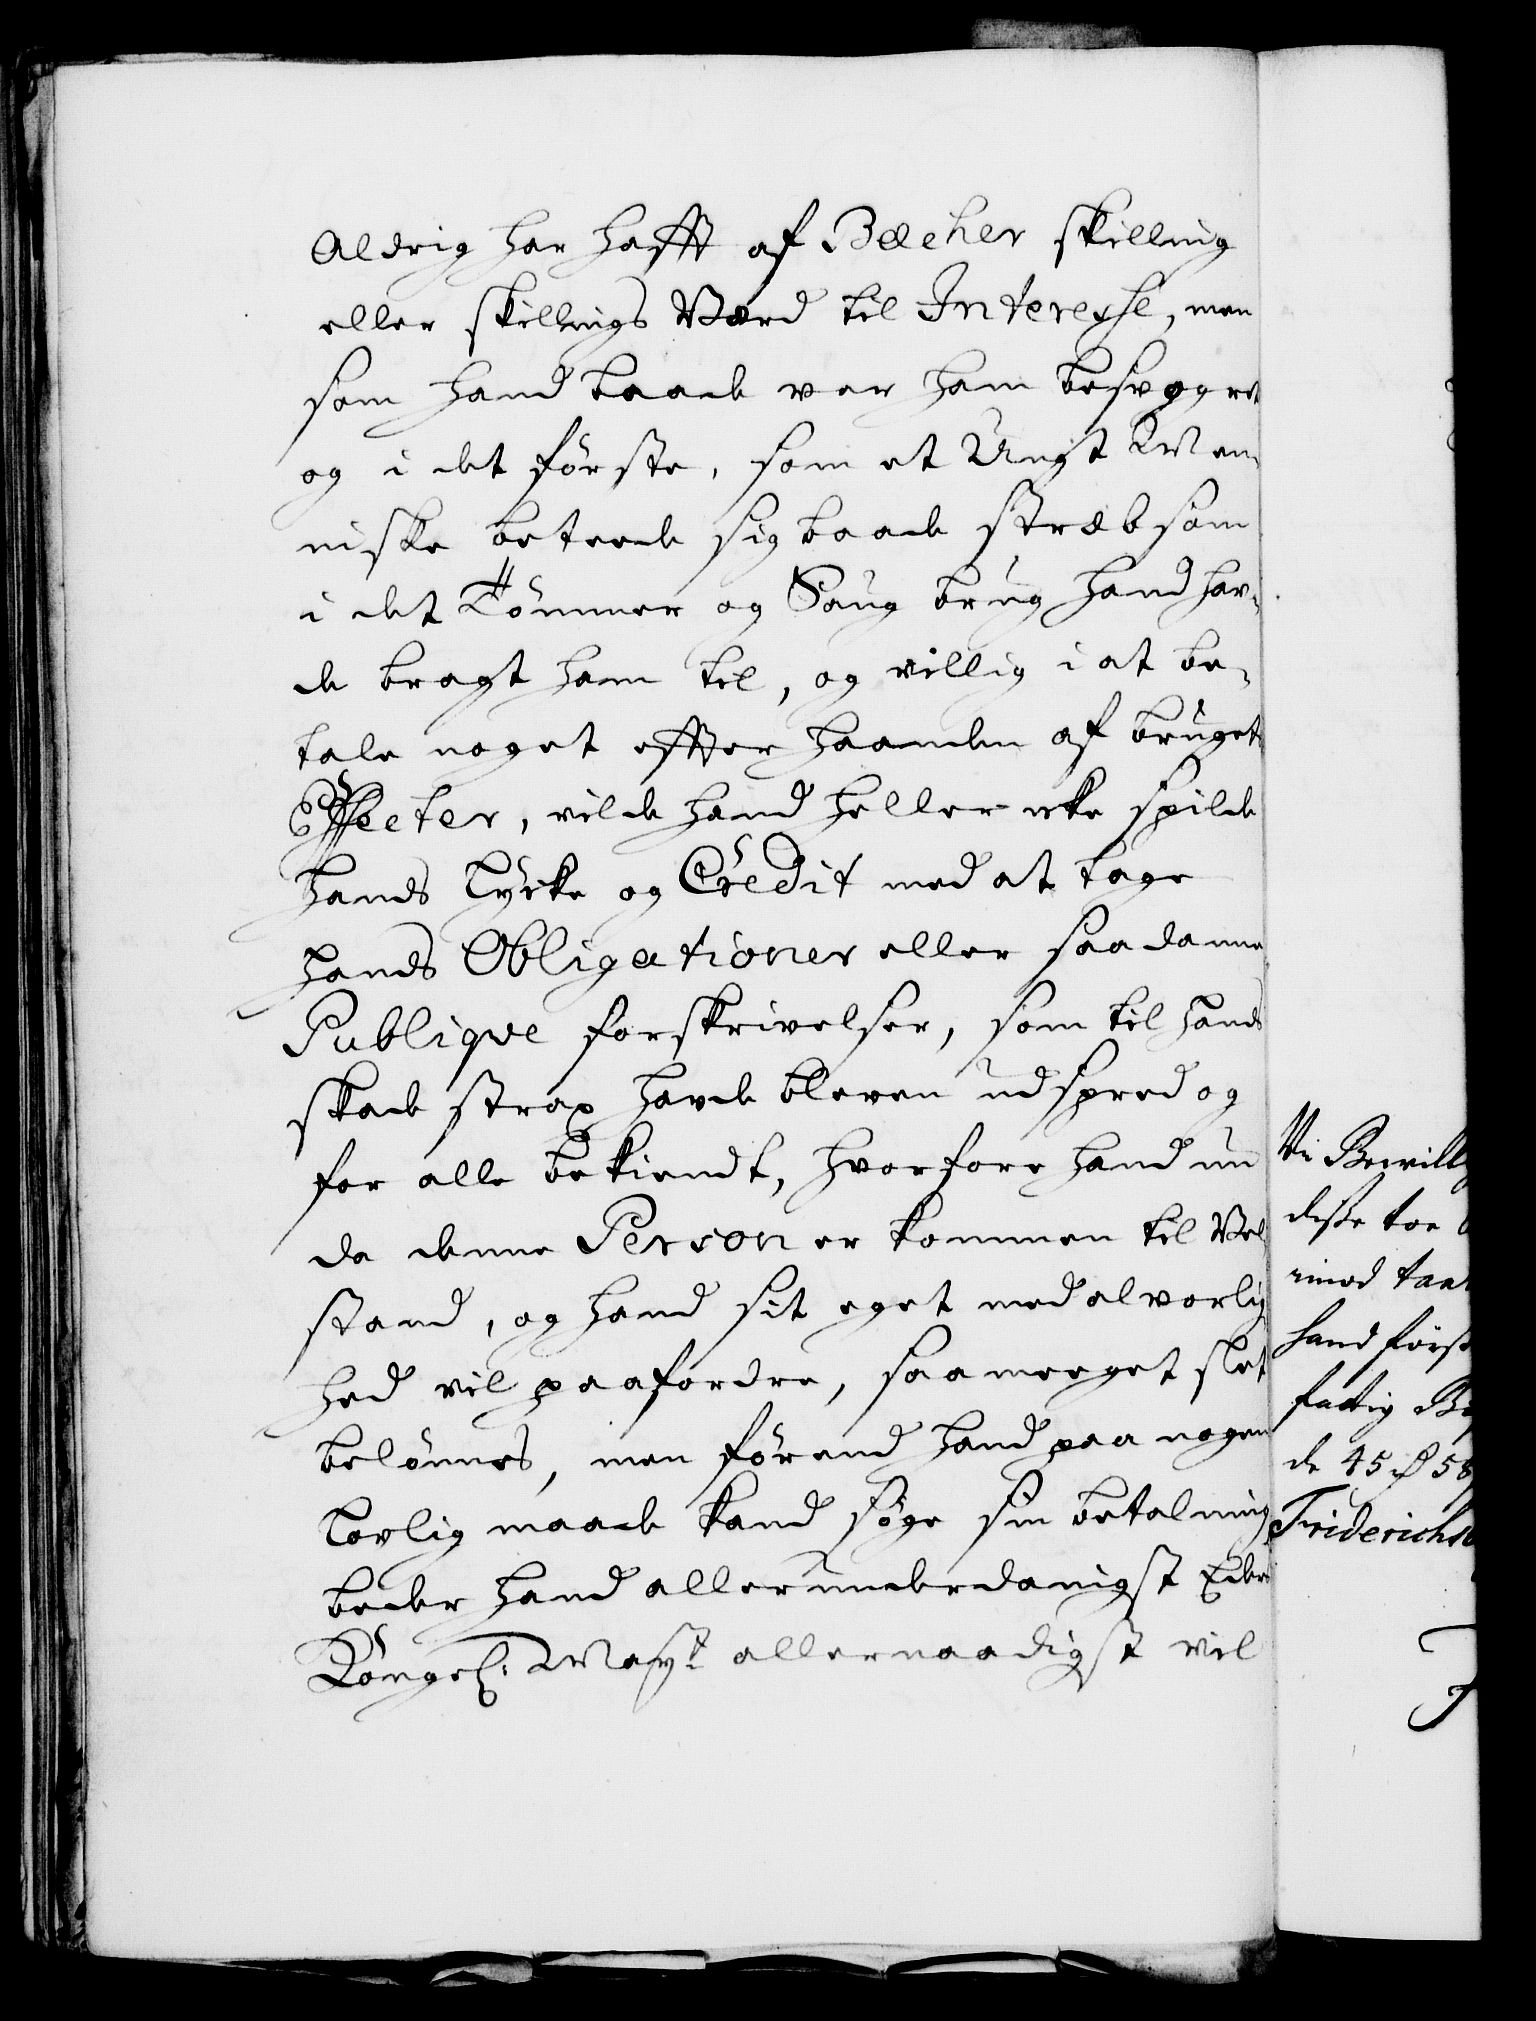 Aldrig har hafft af Bæcher skilling
eller skillings Værd til Interesse, men
som hand baade var ham besvogret
og i det første, som et Ungt Men¬
niske beteede sig baade stræbsom
i det Tömmer og Saug brug hand hav¬
de bragt ham til, og villig i at be¬
tale noget effter haanden af brugets
Effecter, vilde hand heller icke spilde
hands lycke og Credit med at tage
hands Obligationer eller saadanne
Publiqve forskrivelser, som til hands
skade strax havde bleven udspred og
for alle bekiendt, hvorfore hand nu
da denne Person er kommen til Vel¬
stand, og hand sit eget med alvorlig¬
hed vil paafordre, saa meeget slet
belønnes, men førend hand paa nogen
lovlig maade kand søge sin betalning
beder hand allerunderdanigst Eders
Kongel: Mayt allernaadigst vil
Vi Bevill
disse toe
imod taa
hand først
fattig
de 45 58
Friderichs